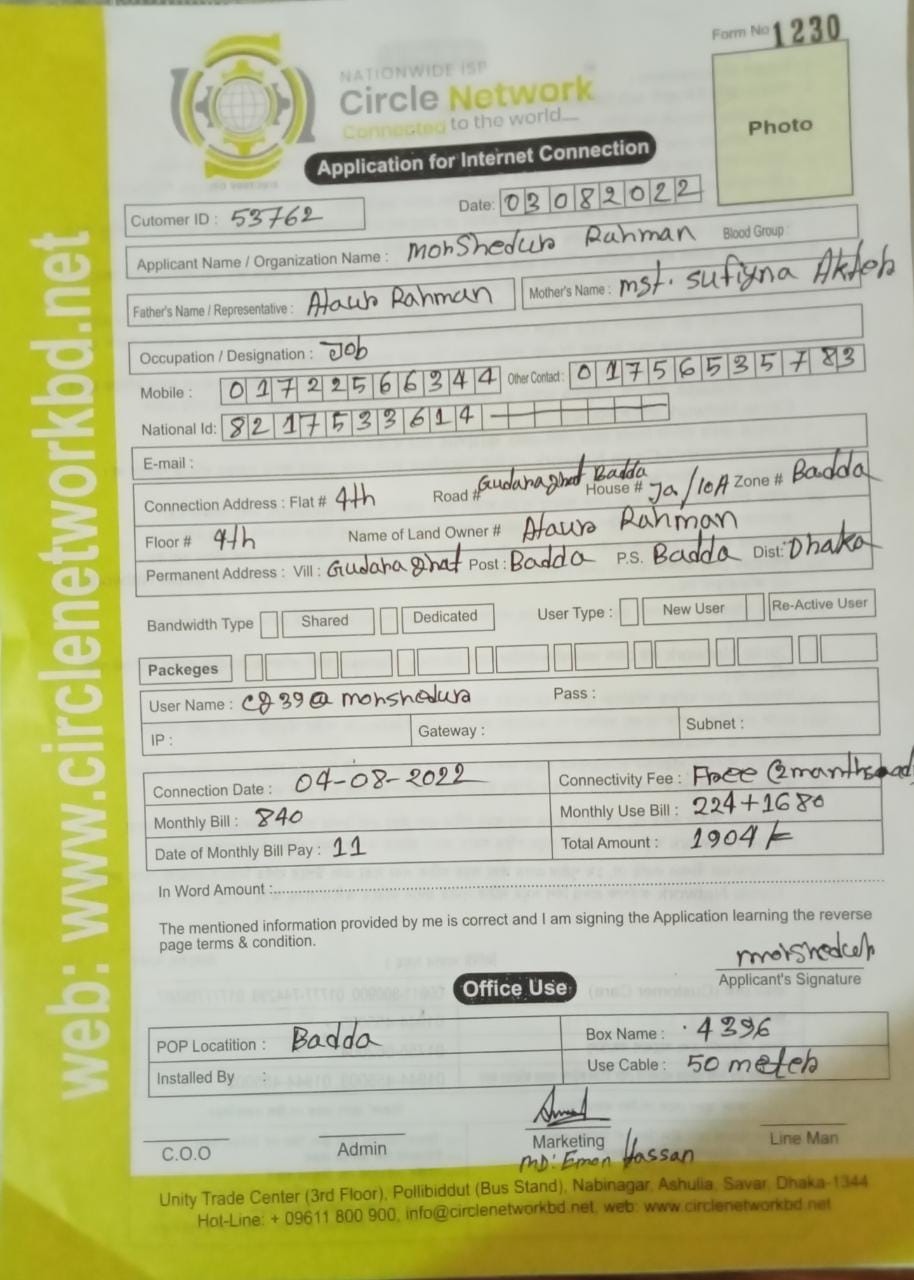 Form No 1230
NATIONWIDE ISP
Circle Network
Connected to the world
Photo
Application for Internet Connection
Cutomer ID : 53762
Date: 03082022
Applicant Name / Organization Name : Morshedur Rahman Blood Group :
Father's Name / Representative : Ataur Rahman Mother's Name : mst. sufiyna Akter
Occupation / Designation : Job
Mobile : 01722566344 Other Contact : 01756535783
National Id: 8217533614
E-mail :
Connection Address : Flat # 4th Road # Gudaraghat Badda House # Ja/10A Zone # Badda
Floor # 4th Name of Land Owner # Ataur Rahman
Permanent Address : Vill : Gudaraghat Post : Badda P.S. Badda Dist: Dhaka
Bandwidth Type Shared Dedicated User Type : New User Re-Active User
Packeges
User Name : morshedur Pass :
IP : Gateway : Subnet :
Connection Date : 04-08-2022 Connectivity Fee : Free
Monthly Bill : 840 Monthly Use Bill : 224+1680
Date of Monthly Bill Pay : 11 Total Amount : 1904
In Word Amount :
The mentioned information provided by me is correct and I am signing the Application learning the reverse
page terms & condition.
morshedur
Applicant's Signature
Office Use
POP Locatition : Badda Box Name : 4396
Installed By : Use Cable : 50 meter
C.O.O Admin Marketing Line Man
MD: Emon Hassan
Unity Trade Center (3rd Floor), Pollibiddut (Bus Stand), Nabinagar, Ashulia, Savar, Dhaka-1344
Hot-Line: + 09611 800 900, info@circlenetworkbd.net, web: www.circlenetworkbd.net
web: www.circlenetworkbd.net